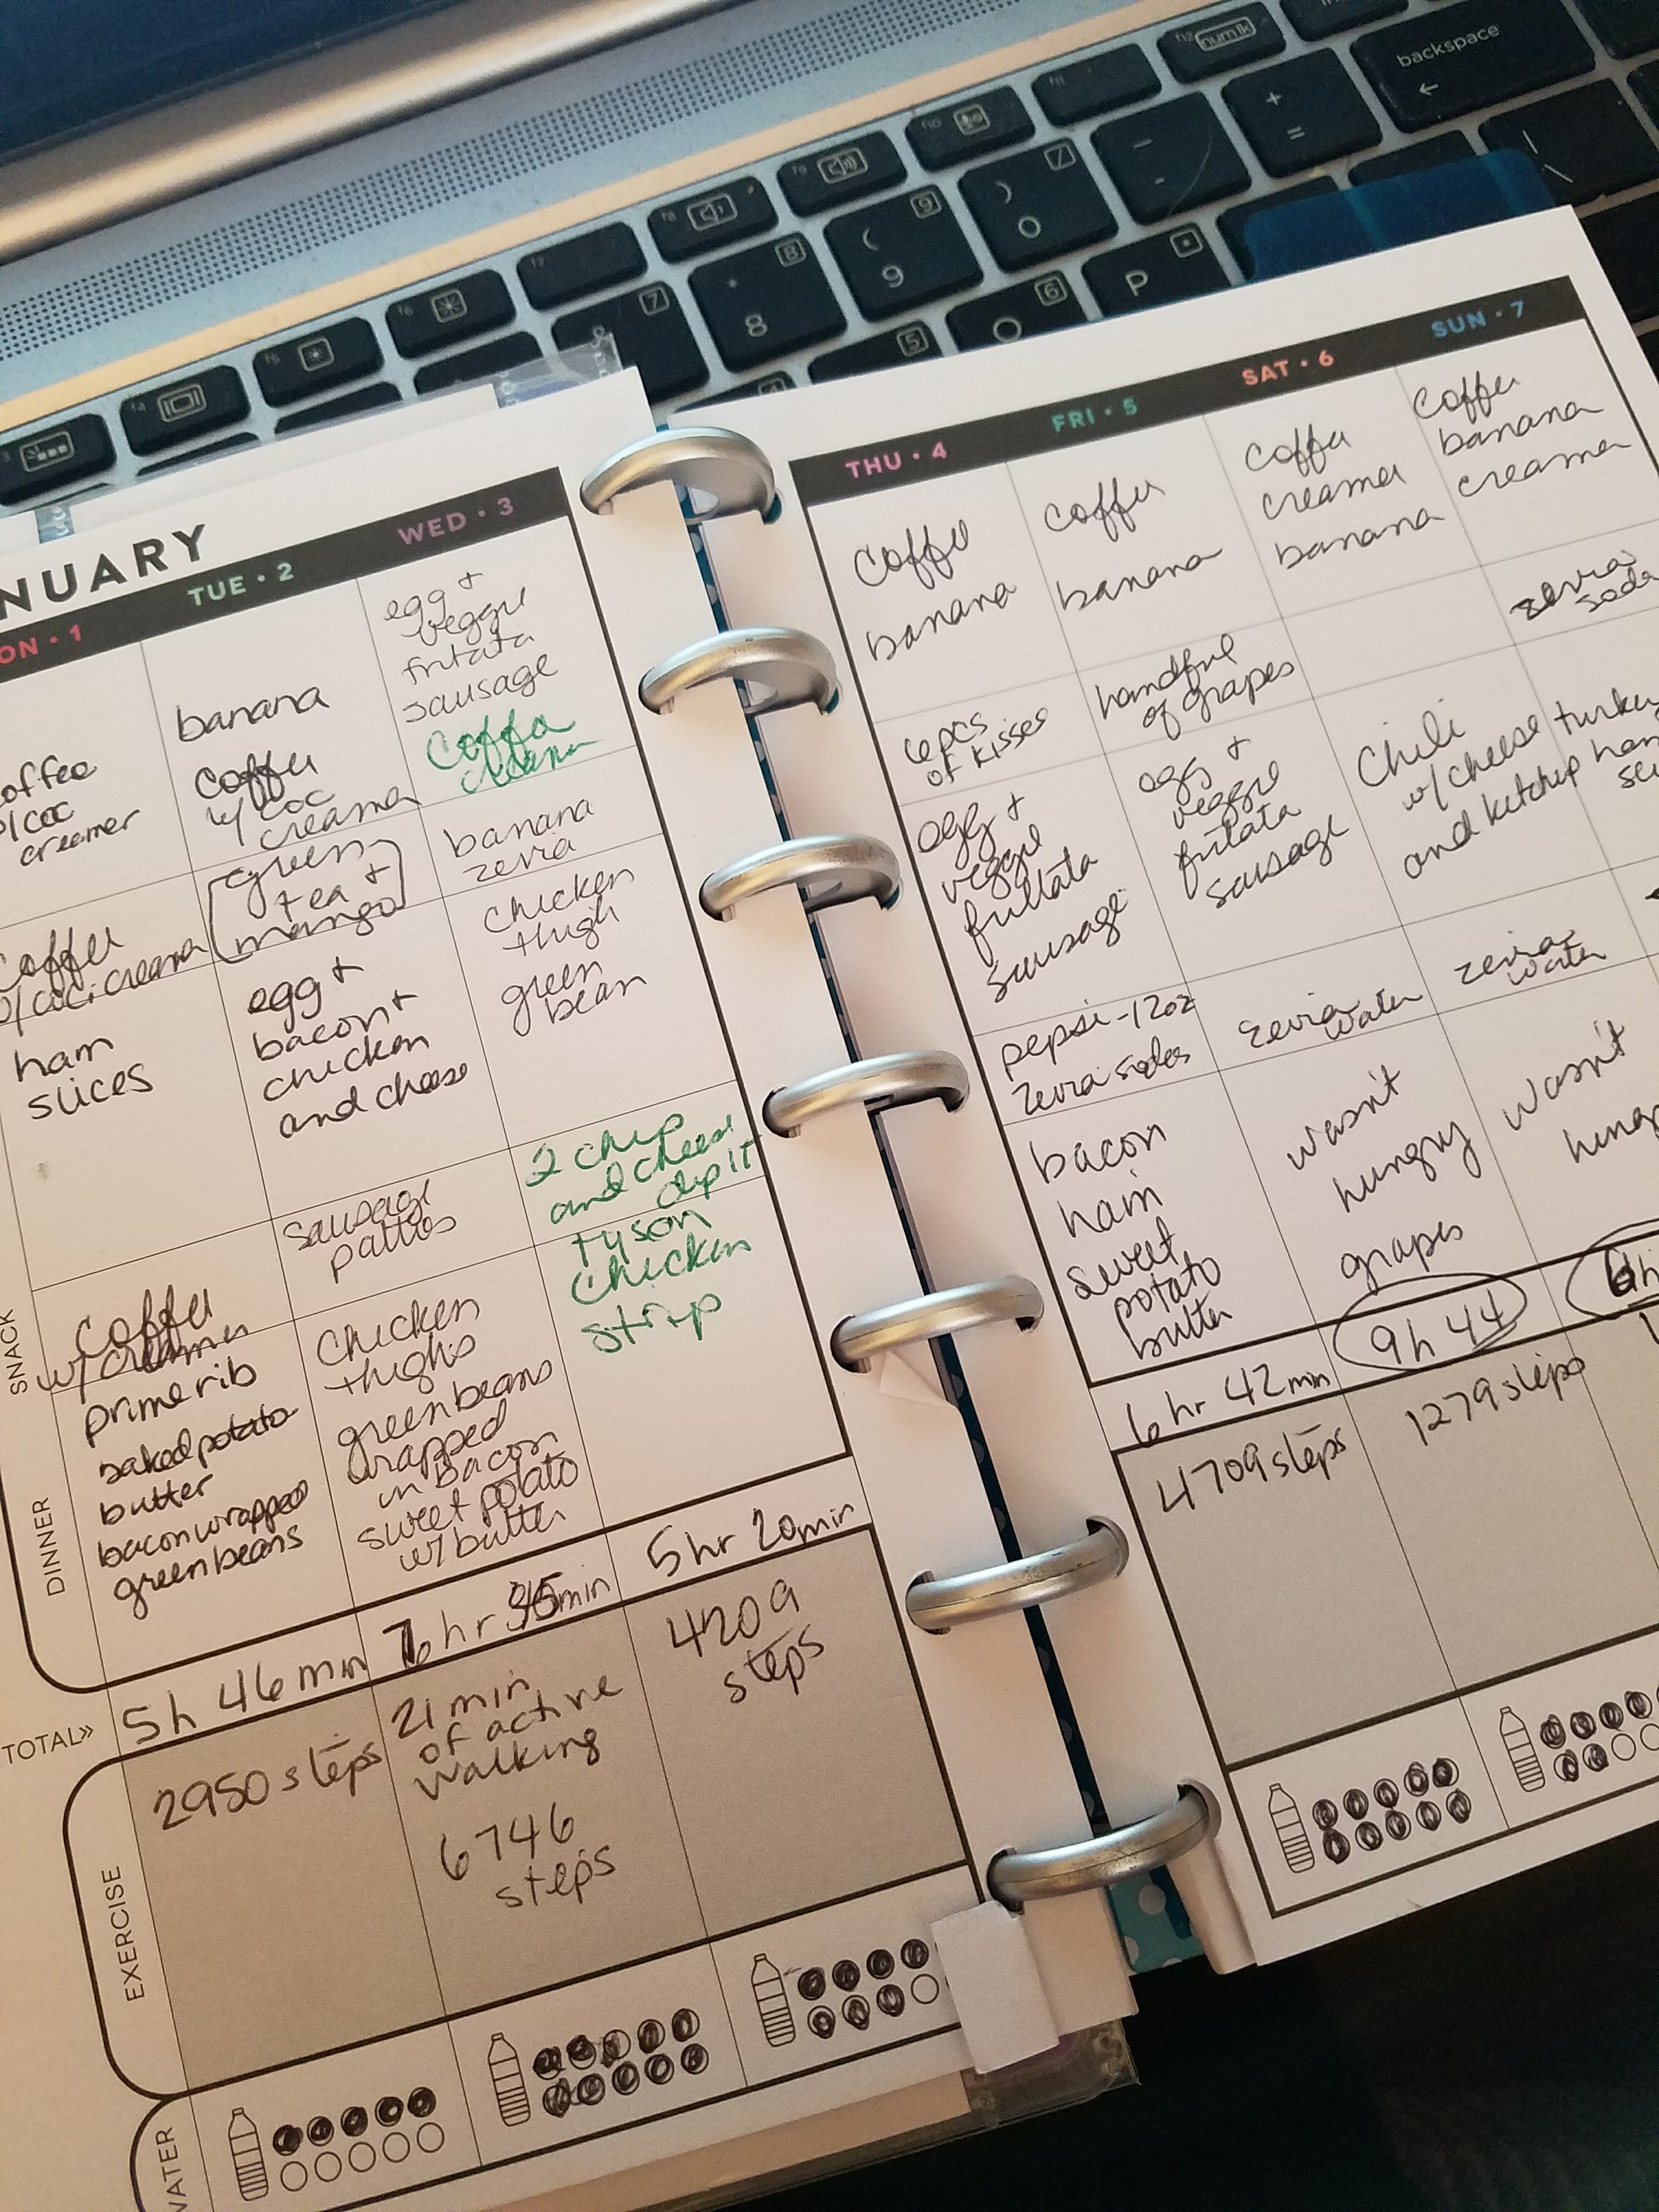 backspace
num lk
+
=
-
)
0
(
9
*
8
7
P
O
NUARY
ON • 1
TUE • 2
WED • 3
offee
w/ coc
creamer
coffee
w/ coc creamer
ham
slices
coffee
w/ creamer
prime rib
baked potato
butter
bacon wrapped
green beans
5h 46 min
2950 steps
banana
coffee
w/ coc
creamer
green
tea +
mango
egg +
bacon +
chicken
and cheese
sausage
patties
chicken
thighs
green beans
wrapped
in bacon
sweet potato
w/ butter
21 min
of active
walking
6746
steps
egg +
veggie
fritata
sausage
coffee
creamer
banana
zevia
chicken
thigh
green
bean
2 chip
and cheese
dip it
tyson
chicken
strip
5 hr 20 min
4209
steps
SNACK
DINNER
TOTAL»
EXERCISE
WATER
THU • 4
FRI • 5
SAT • 6
SUN • 7
coffee
banana
6 pcs
of kisses
egg +
veggie
frittata
sausage
pepsi - 12oz
zevia sodas
bacon
ham
sweet
potato
butter
6 hr 42 min
4709 steps
coffee
banana
handful
of grapes
egg +
veggie
fritata
sausage
zevia
water
wasn't
hungry
grapes
9h 44
1279 steps
coffee
creamer
banana
Chili
w/ cheese
and ketchup
zevia
water
wasn't
coffee
banana
creamer
zevia
soda
turkey